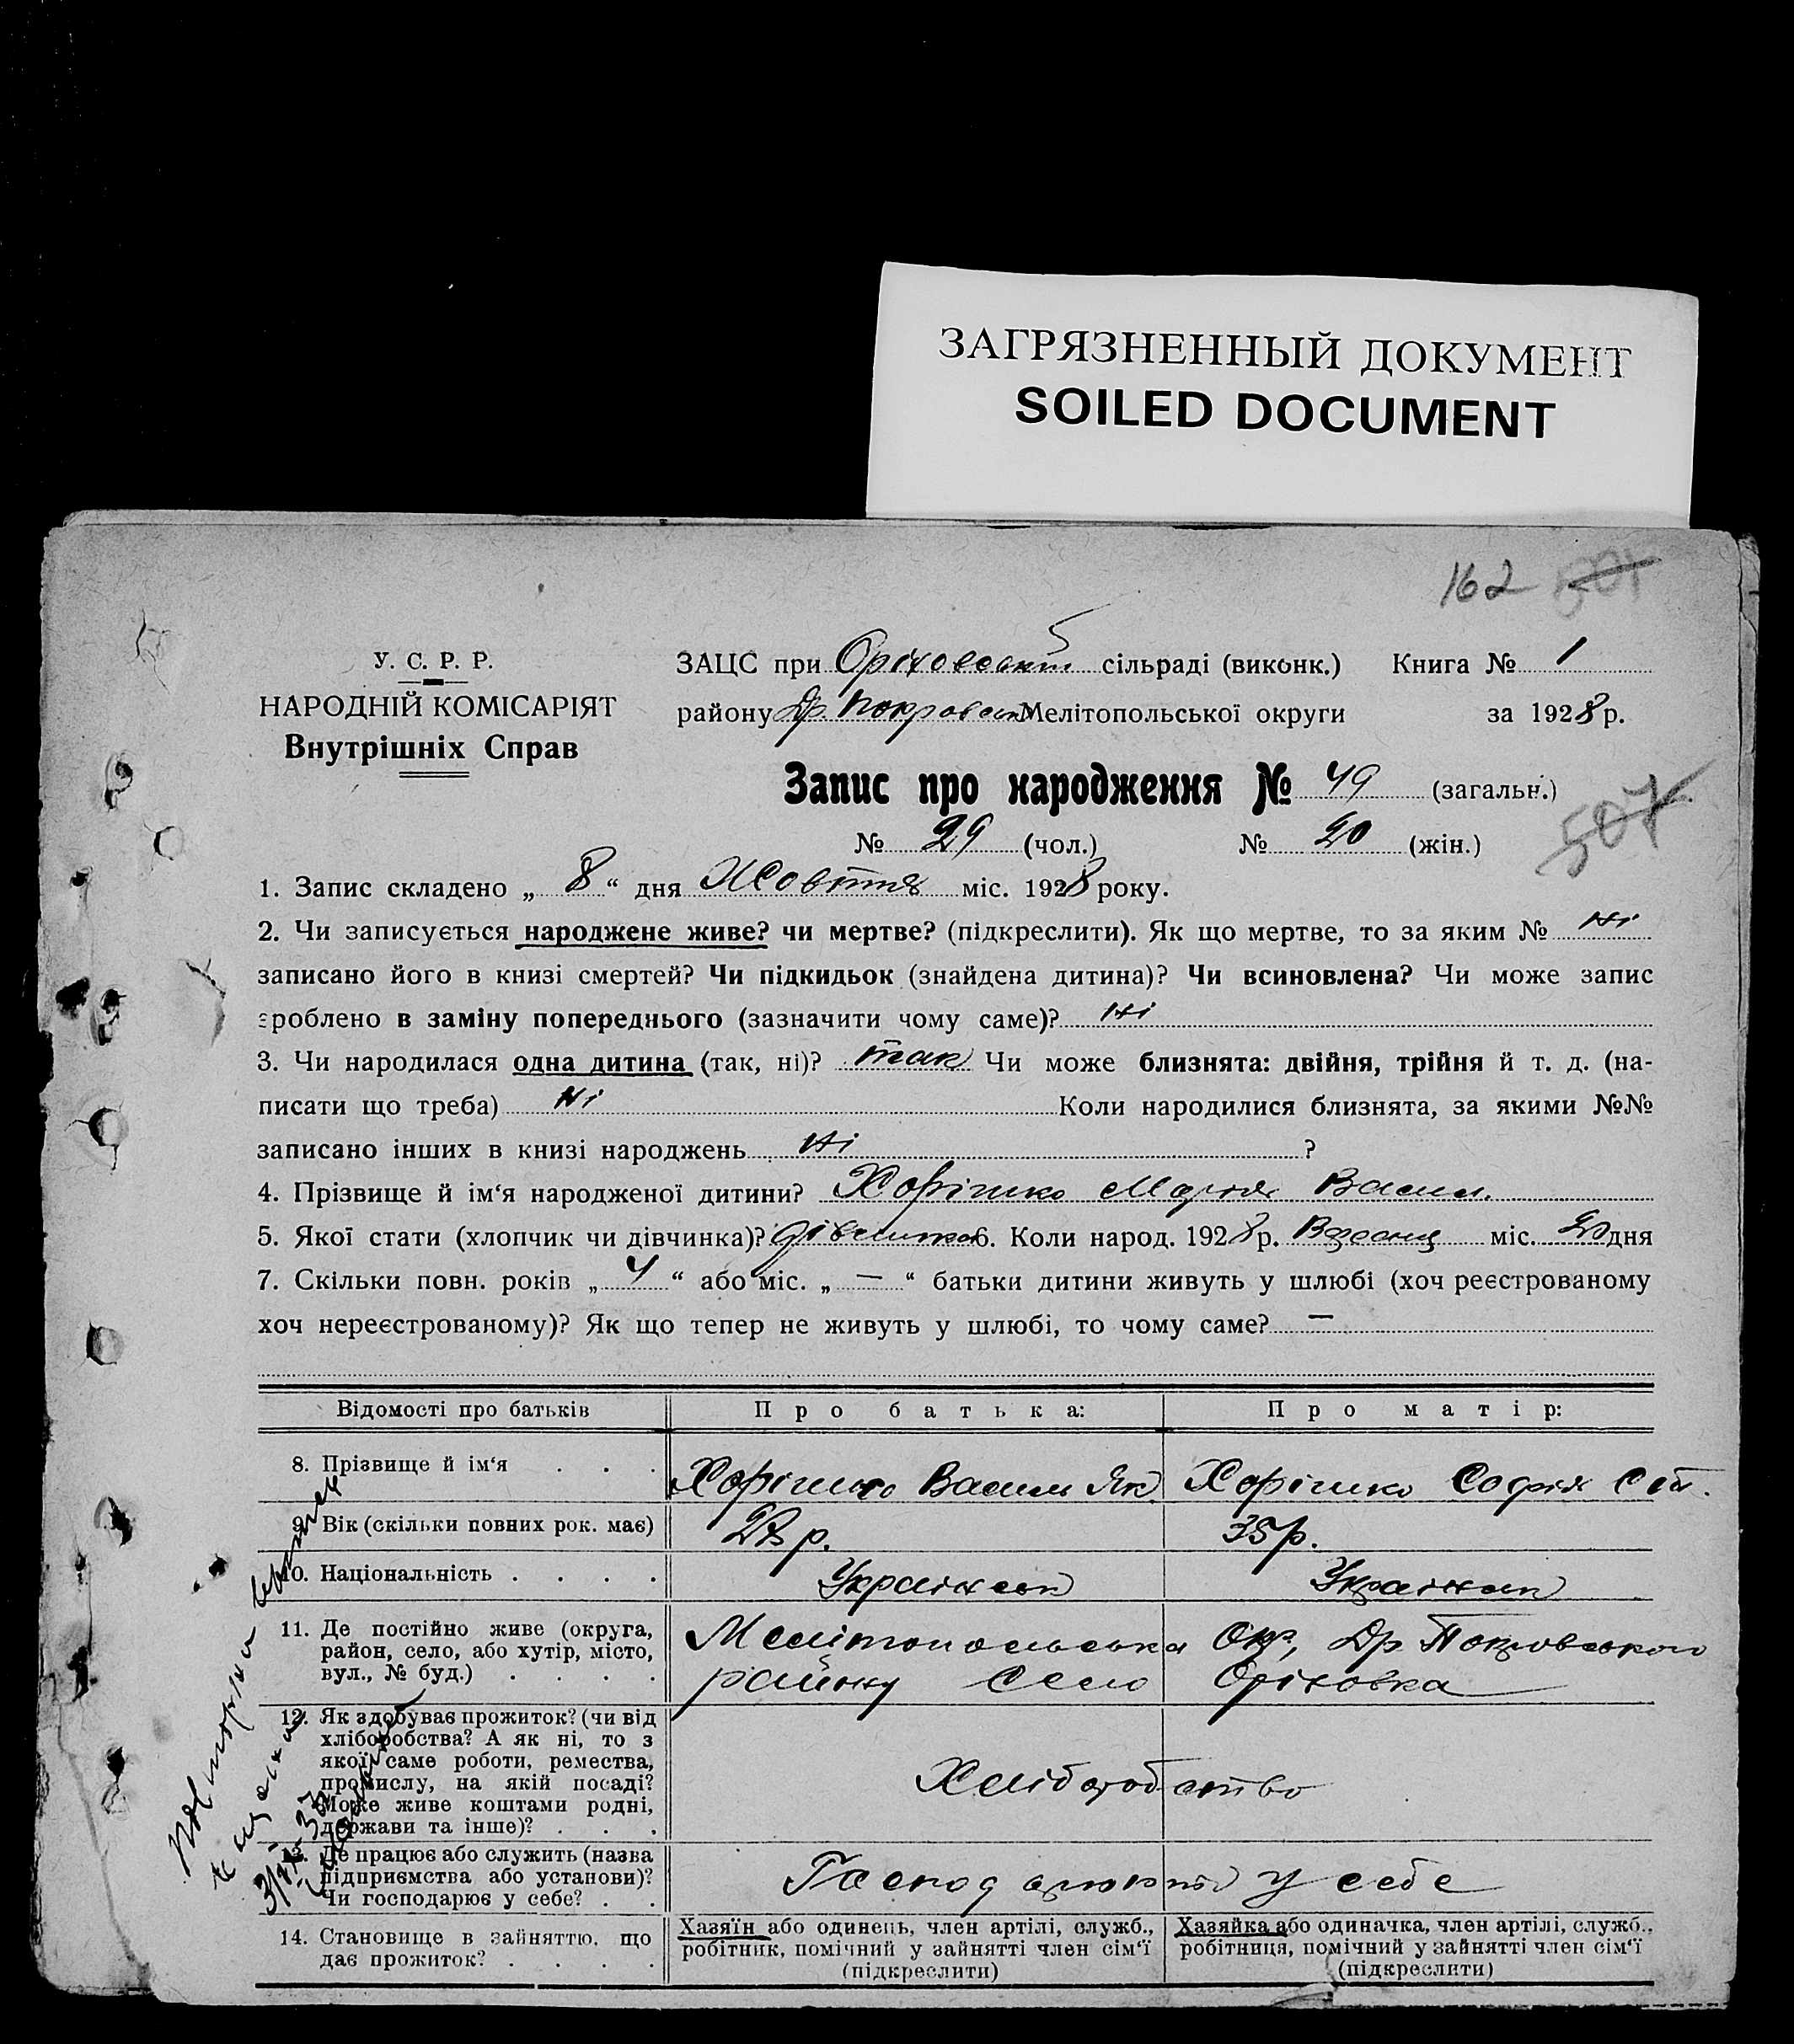 ЗАГРЯЗНЕННЫЙ ДОКУМЕНТ
SOILED DOCUMENT
162
У. С. Р. Р.
НАРОДНІЙ КОМІСАРІЯТ
Внутрішніх Справ
ЗАЦС при Оріховській сільраді (виконк.) Книга № 1
району Др. Покровськ Мелітопольської округи за 1928 р.
Запис про народження № 49 (загальн.)
№ 29 (чол.) № 20 (жін.)
507
1. Запис складено „ 8 “ дня Жовтня міс. 1928 року.
2. Чи записується народжене живе? чи мертве? (підкреслити). Як що мертве, то за яким № Ні
записано його в книзі смертей? Чи підкидьок (знайдена дитина)? Чи всиновлена? Чи може запис
зроблено в заміну попереднього (зазначити чому саме)? Ні
3. Чи народилася одна дитина (так, ні)? так Чи може близнята: двійня, трійня й т. д. (на-
писати що треба) Ні Коли народилися близнята, за якими №№
записано інших в книзі народжень Ні ?
4. Прізвище й ім‘я народженої дитини? Хорішко Марія Васил.
5. Якої стати (хлопчик чи дівчинка)? дівчинка 6. Коли народ. 1928 р. міс. 20 дня
7. Скільки повн. років „ 4 “ або міс. „ — “ батьки дитини живуть у шлюбі (хоч реєстрованому
хоч нереєстрованому)? Як що тепер не живуть у шлюбі, то чому саме? —
Відомості про батьків Про батька: Про матір:
8. Прізвище й ім‘я . . . Хорішко Василь Як. Хорішко Софія Ст.
9. Вік (скільки повних рок. має) р. 35 р.
10. Національність . . . . Українськ Українськ
11. Де постійно живе (округа,
район, село, або хутір, місто,
вул., № буд.) . . . .
Мелітопольська Окр, Др Покровського
району Село Оріховка
12. Як здобуває прожиток? (чи від
хліборобства? А як ні, то з
якої саме роботи, ремества,
промислу, на якій посаді?
Може живе коштами родні,
держави та інше)? . . .
Хліборобство
13. Де працює або служить (назва
підприємства або установи)?
Чи господарює у себе? . .
Господарюють у себе
14. Становище в зайняттю, що
дає прожиток? . . . .
Хазяїн або одинець, член артілі, служб.,
робітник, помічний у зайнятті член сім‘ї
(підкреслити)
Хазяйка або одиначка, член артілі, служб.,
робітниця, помічний у зайнятті член сім‘ї
(підкреслити)